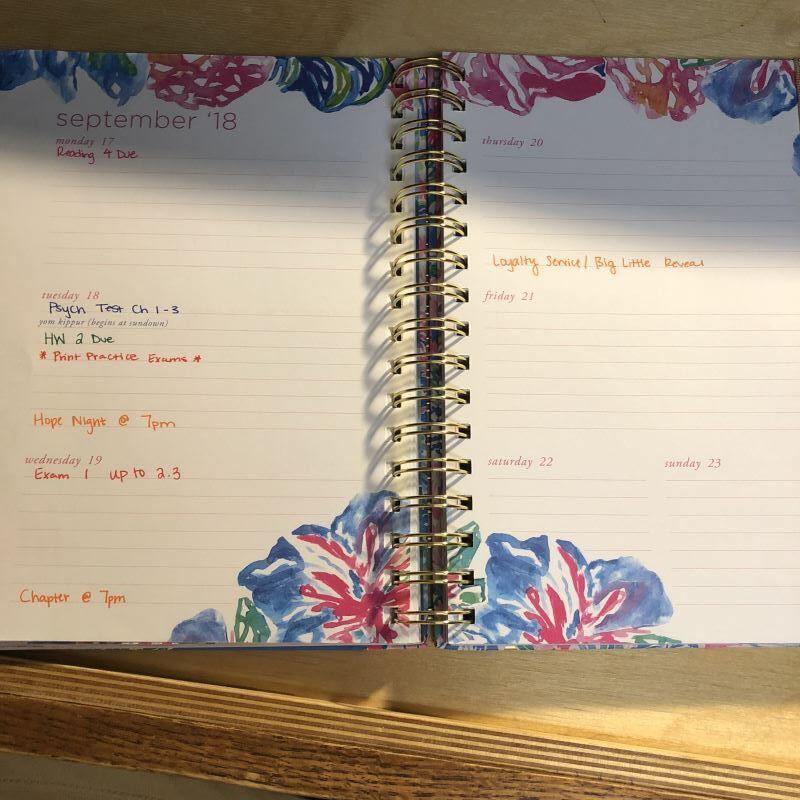 september '18
monday 17
Reading 4 Due
tuesday 18
Psych Test Ch 1-3
yom kippur (begins at sundown)
HW 2 Due
* Print Practice Exams *
Hope Night @ 7pm
wednesday 19
Exam 1 up to 2.3
Chapter @ 7pm
thursday 20
Loyalty Service / Big Little Reveal
friday 21
saturday 22
sunday 23